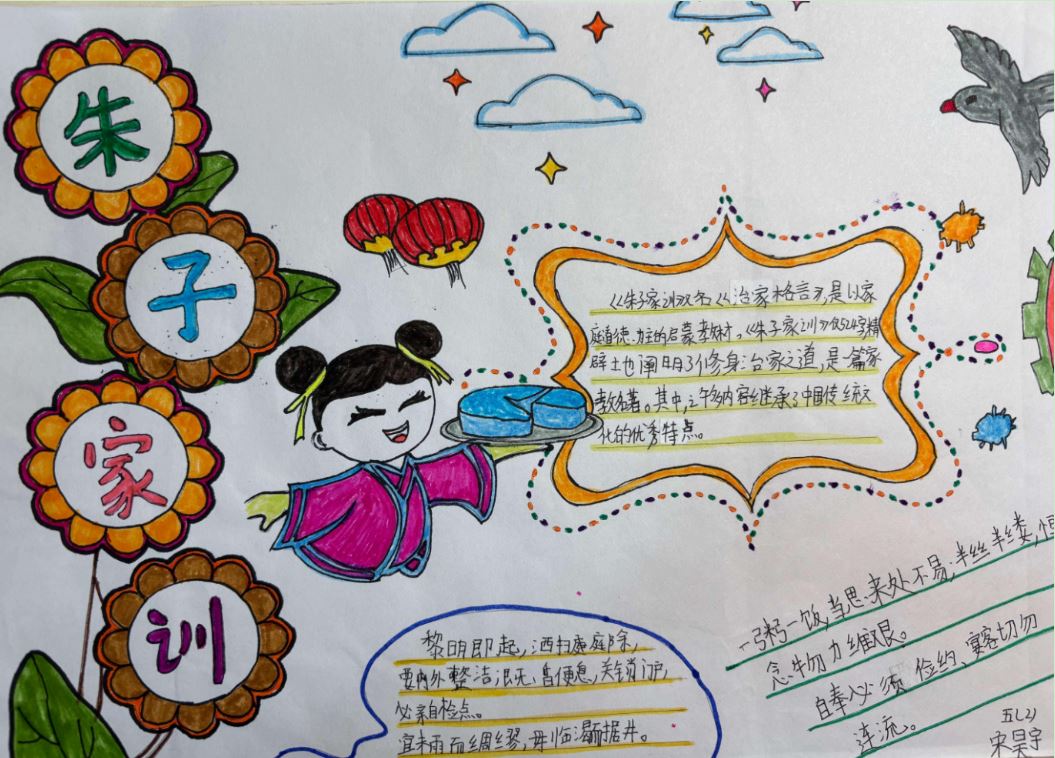 朱
子
家
训
《朱子家训》又名《治家格言》,是以家
庭道德为主的启蒙教材。《朱子家训》仅524字,精
辟地阐明了修身治家之道,是一篇家
教名著。其中,许多内容继承了中国传统文
化的优秀特点。
黎明即起,洒扫庭除,
要内外整洁,既昏便息,关锁门户,
必亲自检点。
宜未雨而绸缪,毋临渴而掘井。
一粥一饭,当思来处不易;半丝半缕,恒
念物力维艰。
自奉必须俭约、宴客切勿
连流。
五(2)
宋昊宇